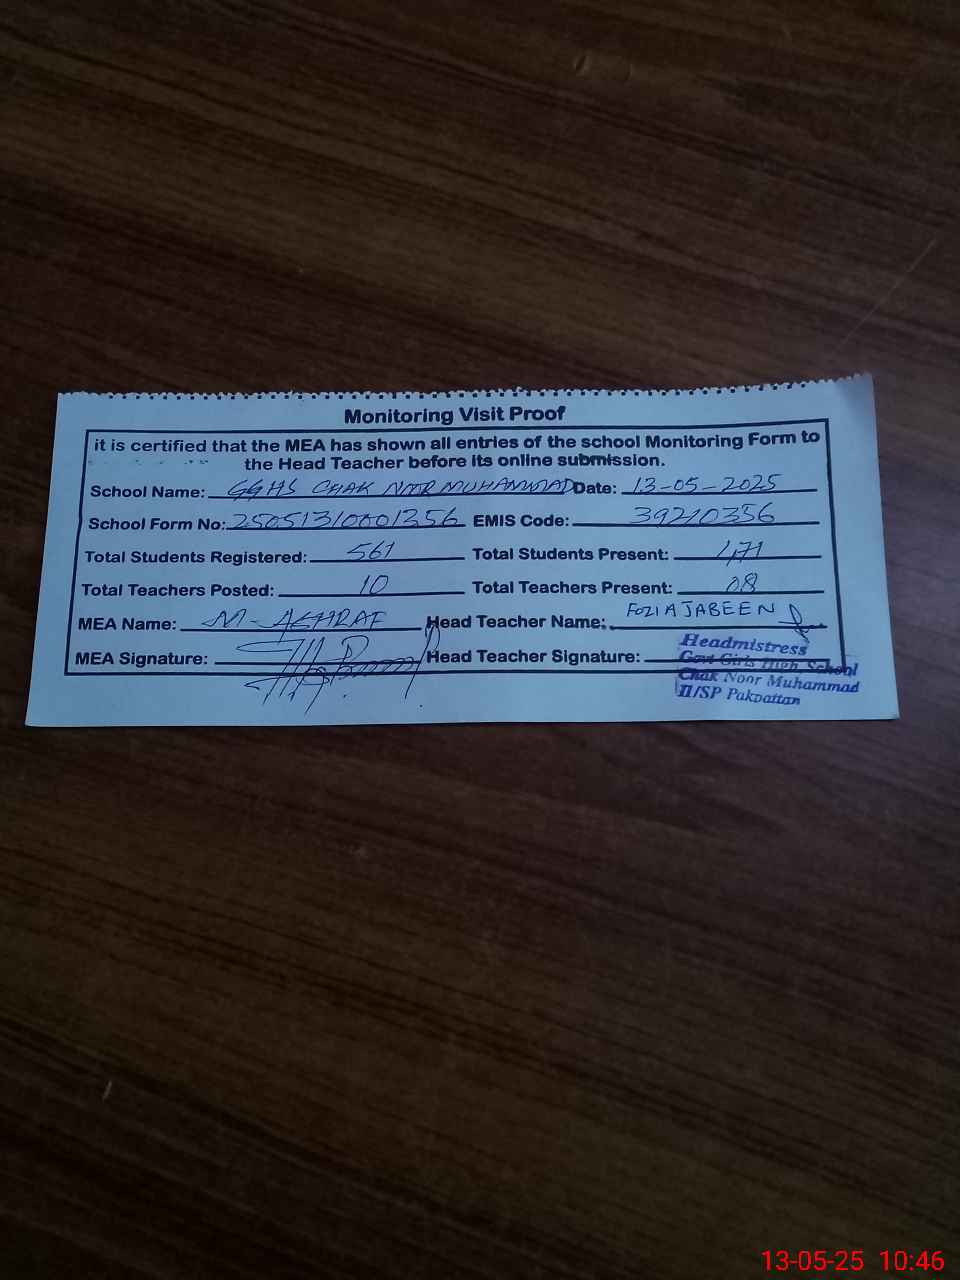 Monitoring Visit Proof
it is certified that the MEA has shown all entries of the school Monitoring Form to
the Head Teacher before its online submission.
School Name: GGHS CHAK NOOR MUHAMMAD Date: 13-05-2025
School Form No: 25051310001356 EMIS Code: 39210356
Total Students Registered: 561 Total Students Present: 471
Total Teachers Posted: 10 Total Teachers Present: 08
MEA Name: M-ASHRAF Head Teacher Name: FOZIA JABEEN
MEA Signature: Head Teacher Signature:
Headmistress
Govt Girls High School
Chak Noor Muhammad
II/SP Pakpattan
13-05-25 10:46